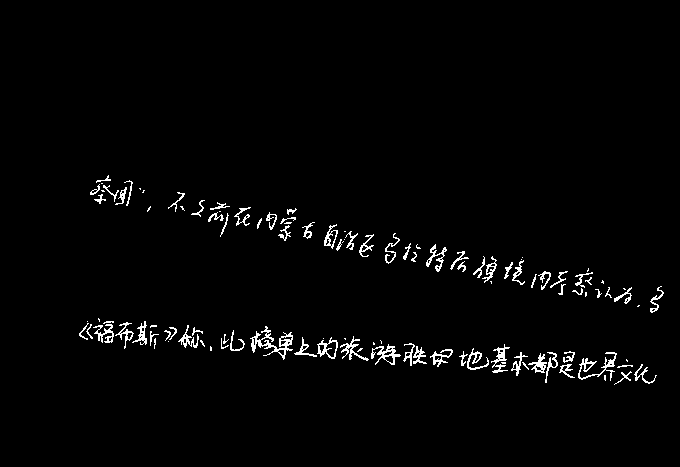 蔡国”，不久前在内蒙古自治区乌拉特后旗境内于蔡认为，乌
《福布斯》称，此榜单上的旅游胜地基本都是世界文化